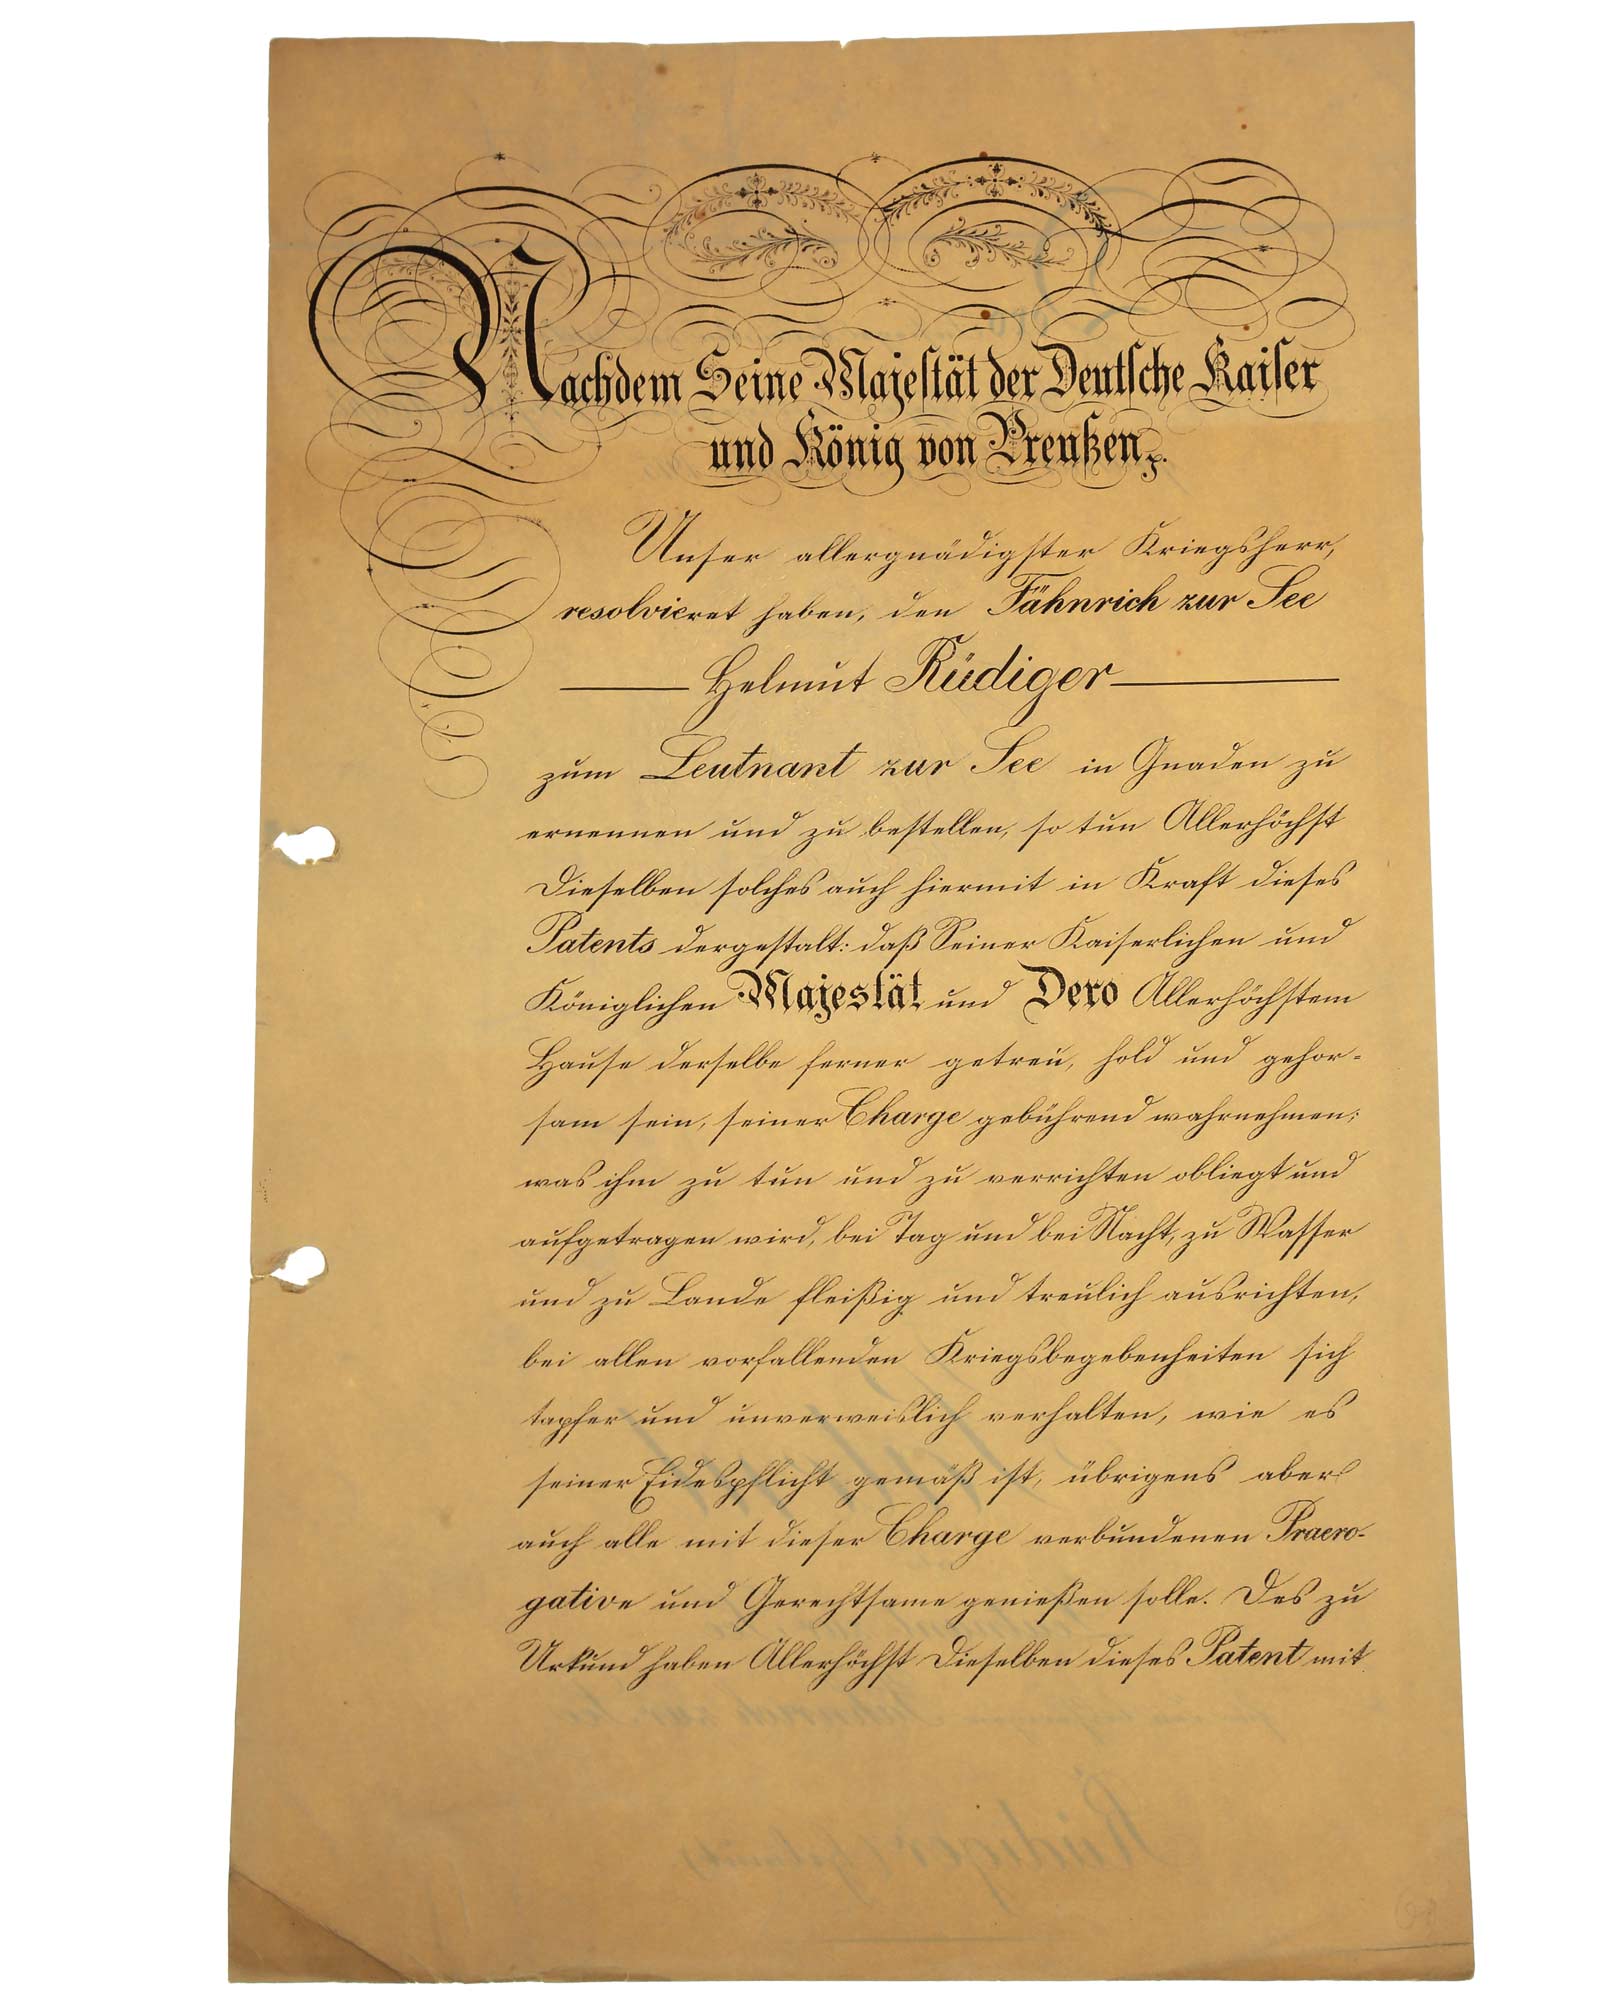 Nachdem Seine Majestät der Deutsche Kaiser
und König von Preußen p.
Unser allergnädigster Kriegsherr,
resolvieret haben, den Fähnrich zur See
Helmut Rüdiger
zum Leutnant zur See in Gnaden zu
ernennen und zu bestellen, so tun Allerhöchst
Dieselben solches auch hiermit in Kraft dieses
Patents dergestalt: daß Seiner Kaiserlichen und
Königlichen Majestät und Dero Allerhöchstem
Hause derselbe ferner getreu, hold und gehor-
sam sein, seiner Charge gebührend wahrnehmen;
was ihm zu tun und zu verrichten obliegt und
aufgetragen wird, bei Tag und bei Nacht, zu Wasser
und zu Lande fleißig und treulich ausrichten,
bei allen vorfallenden Kriegsbegebenheiten sich
tapfer und unverweislich verhalten, wie es
seiner Eidespflicht gemäß ist, übrigens aber
auch alle mit dieser Charge verbundenen Praero-
gative und Gerechtsame genießen solle. Des zu
Urkund haben Allerhöchst Dieselben dieses Patent mit